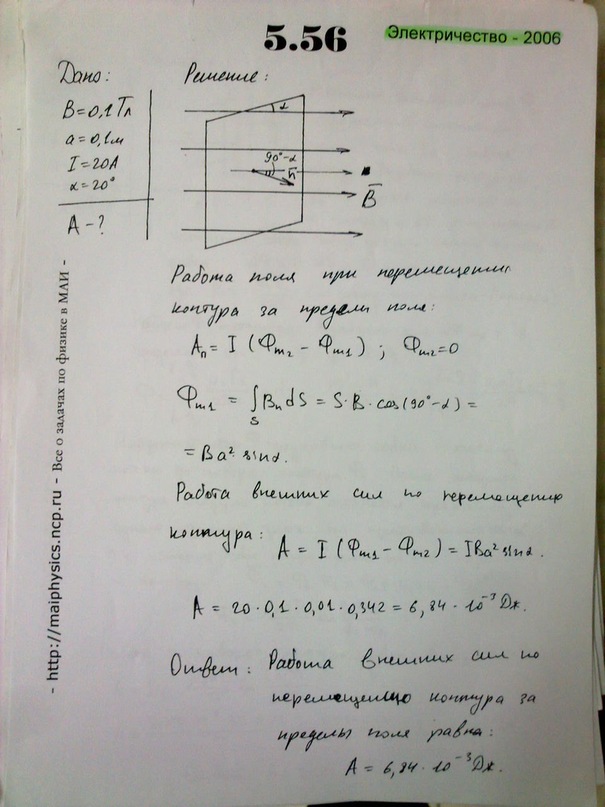 5.56
Электричество - 2006
Дано:
B=0,1Тл
a=0,1м
I=20А
α=20°
A-?
Решение:
α
90°-α
n̅
B̅
Работа поля при перемещении
контура за пределы поля:
Aп = I (Фm2 - Фm1) ; Фm2=0
Фm1 = ∫S Bn dS = S·B·cos(90°-α) =
= Ba² sinα.
Работа внешних сил по перемещению
контура:
A = I (Фm1 - Фm2) = IBa² sinα.
A = 20·0,1·0,01·0,342 = 6,84·10⁻³ Дж.
Ответ: Работа внешних сил по
перемещению контура за
пределы поля равна:
A = 6,84·10⁻³ Дж.
- http://maiphysics.ncp.ru - Все о задачах по физике в МАИ -